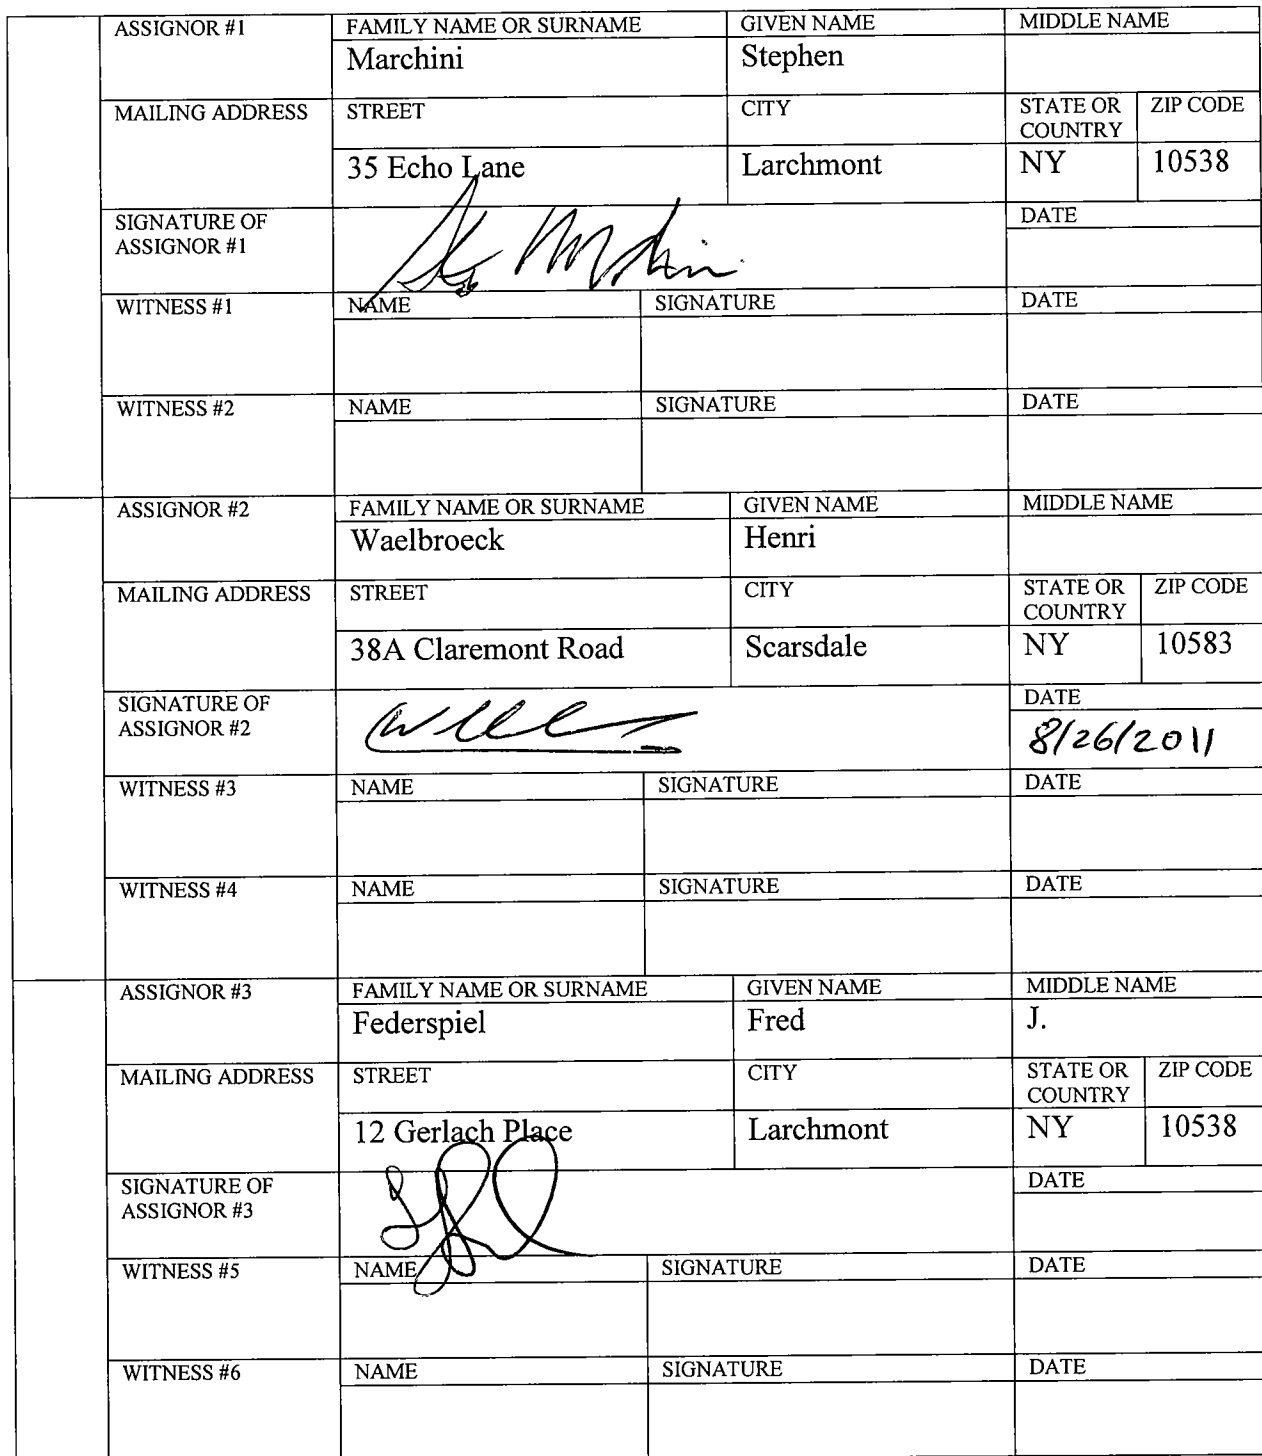 ASSIGNOR #1 FAMILY NAME OR SURNAME GIVEN NAME MIDDLE NAME
Marchini Stephen
MAILING ADDRESS STREET CITY STATE OR COUNTRY ZIP CODE
35 Echo Lane Larchmont NY 10538
SIGNATURE OF ASSIGNOR #1 DATE
WITNESS #1 NAME SIGNATURE DATE
WITNESS #2 NAME SIGNATURE DATE
ASSIGNOR #2 FAMILY NAME OR SURNAME GIVEN NAME MIDDLE NAME
Waelbroeck Henri
MAILING ADDRESS STREET CITY STATE OR COUNTRY ZIP CODE
38A Claremont Road Scarsdale NY 10583
SIGNATURE OF ASSIGNOR #2 DATE
8/26/2011
WITNESS #3 NAME SIGNATURE DATE
WITNESS #4 NAME SIGNATURE DATE
ASSIGNOR #3 FAMILY NAME OR SURNAME GIVEN NAME MIDDLE NAME
Federspiel Fred J.
MAILING ADDRESS STREET CITY STATE OR COUNTRY ZIP CODE
12 Gerlach Place Larchmont NY 10538
SIGNATURE OF ASSIGNOR #3 DATE
WITNESS #5 NAME SIGNATURE DATE
WITNESS #6 NAME SIGNATURE DATE